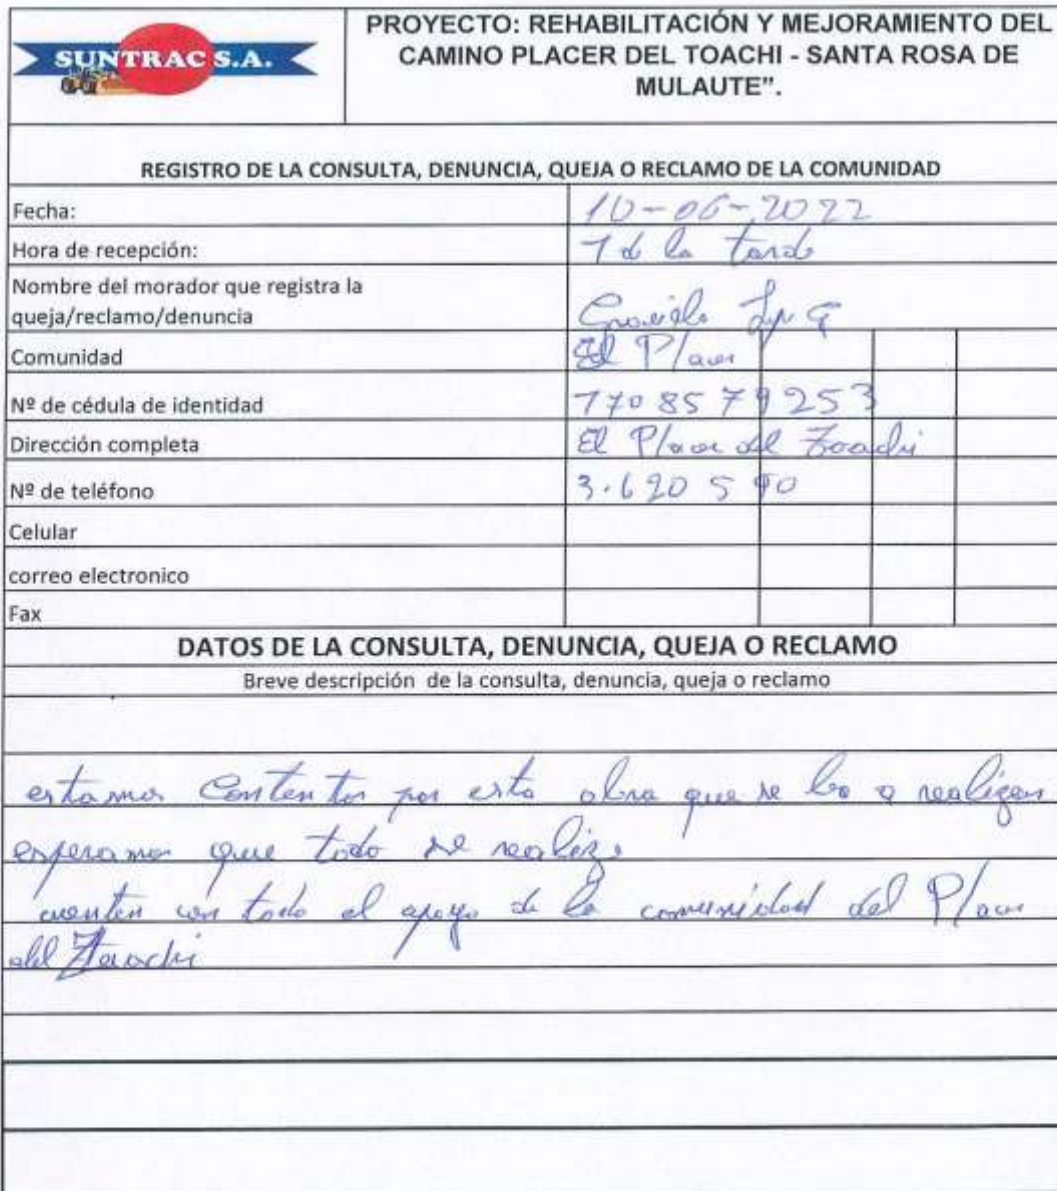 SUNTRAC S.A.
PROYECTO: REHABILITACIÓN Y MEJORAMIENTO DEL
CAMINO PLACER DEL TOACHI - SANTA ROSA DE
MULAUTE”.
REGISTRO DE LA CONSULTA, DENUNCIA, QUEJA O RECLAMO DE LA COMUNIDAD
Fecha: 10-06-2022
Hora de recepción: 1 de la tarde
Nombre del morador que registra la
queja/reclamo/denuncia Graciela
Comunidad El Placer
Nº de cédula de identidad 1708579253
Dirección completa El Placer del Toachi
Nº de teléfono 3.620 590
Celular
correo electronico
Fax
DATOS DE LA CONSULTA, DENUNCIA, QUEJA O RECLAMO
Breve descripción de la consulta, denuncia, queja o reclamo
estamos Contentos por esta obra que se a realizar
esperamos que todo se realize
cuenten con todo el apoyo de la comunidad del Placer
del Toachi